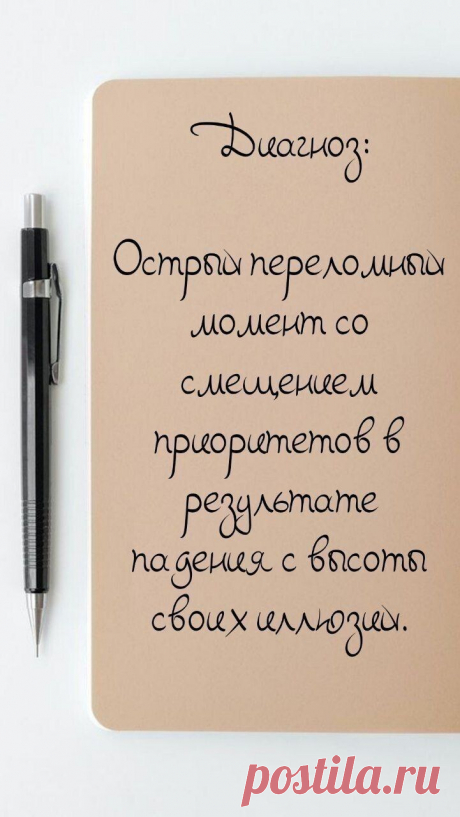 Диагноз:
Острый переломный
момент со
смещением
приоритетов в
результате
падения с высоты
своих иллюзий.
postila.ru